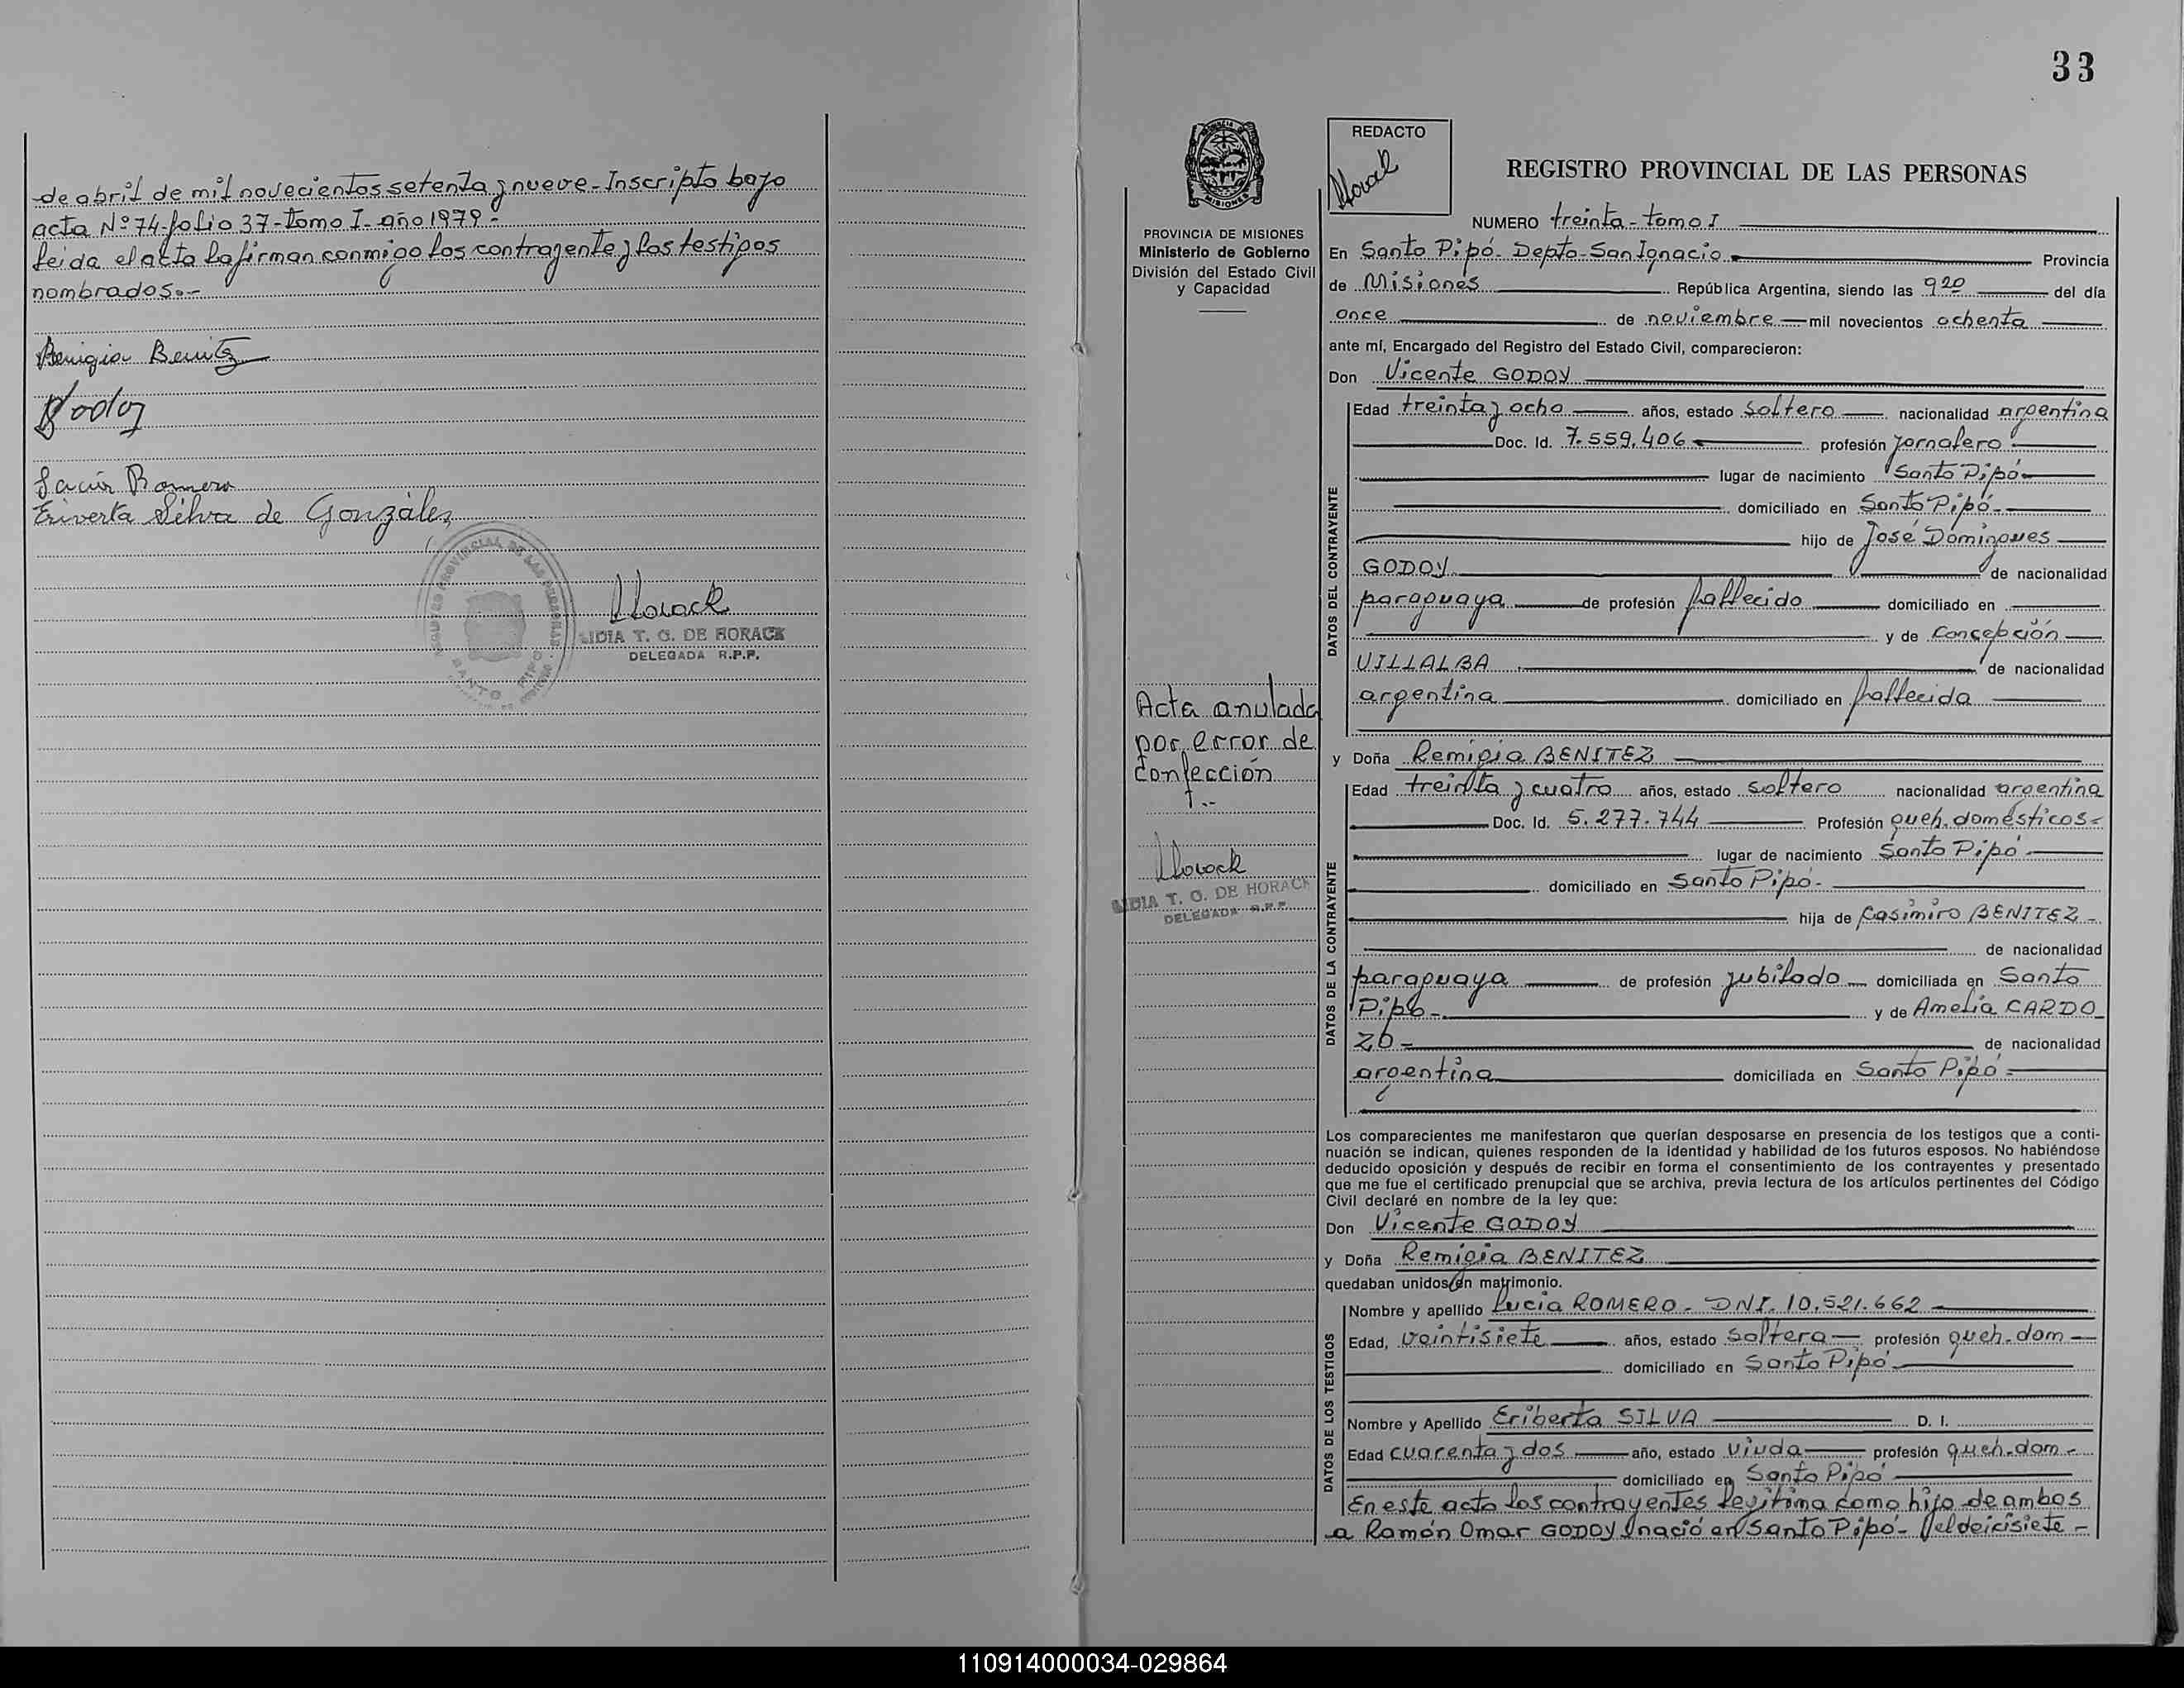 de abril de mil novecientos setenta y nueve - Inscripto bajo
acta Nº 74 - folio 37 - tomo I - año 1979 -
leida el acta la firman conmigo los contrayente y los testigos
nombrados.-
Remigia Benitez
Godoy
Lucia Romero
Eriverta Silva de Gonzàlez
REGISTRO PROVINCIAL DE LAS PERSONAS
SANTO PIPO
Horack
LIDIA T. G. DE HORACK
DELEGADA R.P.P.
33
PROVINCIA DE MISIONES
PROVINCIA DE MISIONES
Ministerio de Gobierno
División del Estado Civil
y Capacidad
Acta anulada
por error de
confección
.-
Horack
LIDIA T. G. DE HORACK
DELEGADA R.P.P.
REDACTO
Horack
REGISTRO PROVINCIAL DE LAS PERSONAS
NUMERO treinta - tomo I
En Santo Pipó - Depto - San Ignacio - Provincia
de Misiones República Argentina, siendo las 9 20 del día
once de noviembre mil novecientos ochenta
ante mí, Encargado del Registro del Estado Civil, comparecieron:
Don Vicente GODOY
DATOS DEL CONTRAYENTE
Edad treinta y ocho años, estado soltero nacionalidad argentina
Doc. Id. 7.559.406 - profesión jornalero
lugar de nacimiento Santo Pipó -
domiciliado en Santo Pipó -
hijo de José Domingues
GODOY de nacionalidad
paraguaya de profesión fallecido domiciliado en
y de Concepción
VILLALBA de nacionalidad
argentina domiciliado en fallecida
y Doña Remigia BENITEZ
DATOS DE LA CONTRAYENTE
Edad treinta y cuatro años, estado soltero nacionalidad argentina
Doc. Id. 5.277.744 Profesión queh. domésticos -
lugar de nacimiento Santo Pipó -
domiciliado en Santo Pipó -
hija de Casimiro BENITEZ -
de nacionalidad
paraguaya de profesión jubilado domiciliada en Santo
Pipó - y de Amelia CARDO
ZO - de nacionalidad
argentina domiciliada en Santo Pipó -
Los comparecientes me manifestaron que querían desposarse en presencia de los testigos que a conti-
nuación se indican, quienes responden de la identidad y habilidad de los futuros esposos. No habiéndose
deducido oposición y después de recibir en forma el consentimiento de los contrayentes y presentado
que me fue el certificado prenupcial que se archiva, previa lectura de los artículos pertinentes del Código
Civil declaré en nombre de la ley que:
Don Vicente GODOY
y Doña Remigia BENITEZ
quedaban unidos en matrimonio.
DATOS DE LOS TESTIGOS
Nombre y apellido Lucia ROMERO - DNI. 10.521.662 -
Edad, veintisiete años, estado soltera profesión queh. dom -
domiciliado en Santo Pipó -
Nombre y Apellido Eriberta SILVA D. I.
Edad cuarenta y dos año, estado viuda profesión queh. dom -
domiciliado en Santo Pipó
En este acto los contrayentes legitima como hijo de ambos
a Ramón Omar GODOY nació en Santo Pipó - el deicisiete -
110914000034-029864